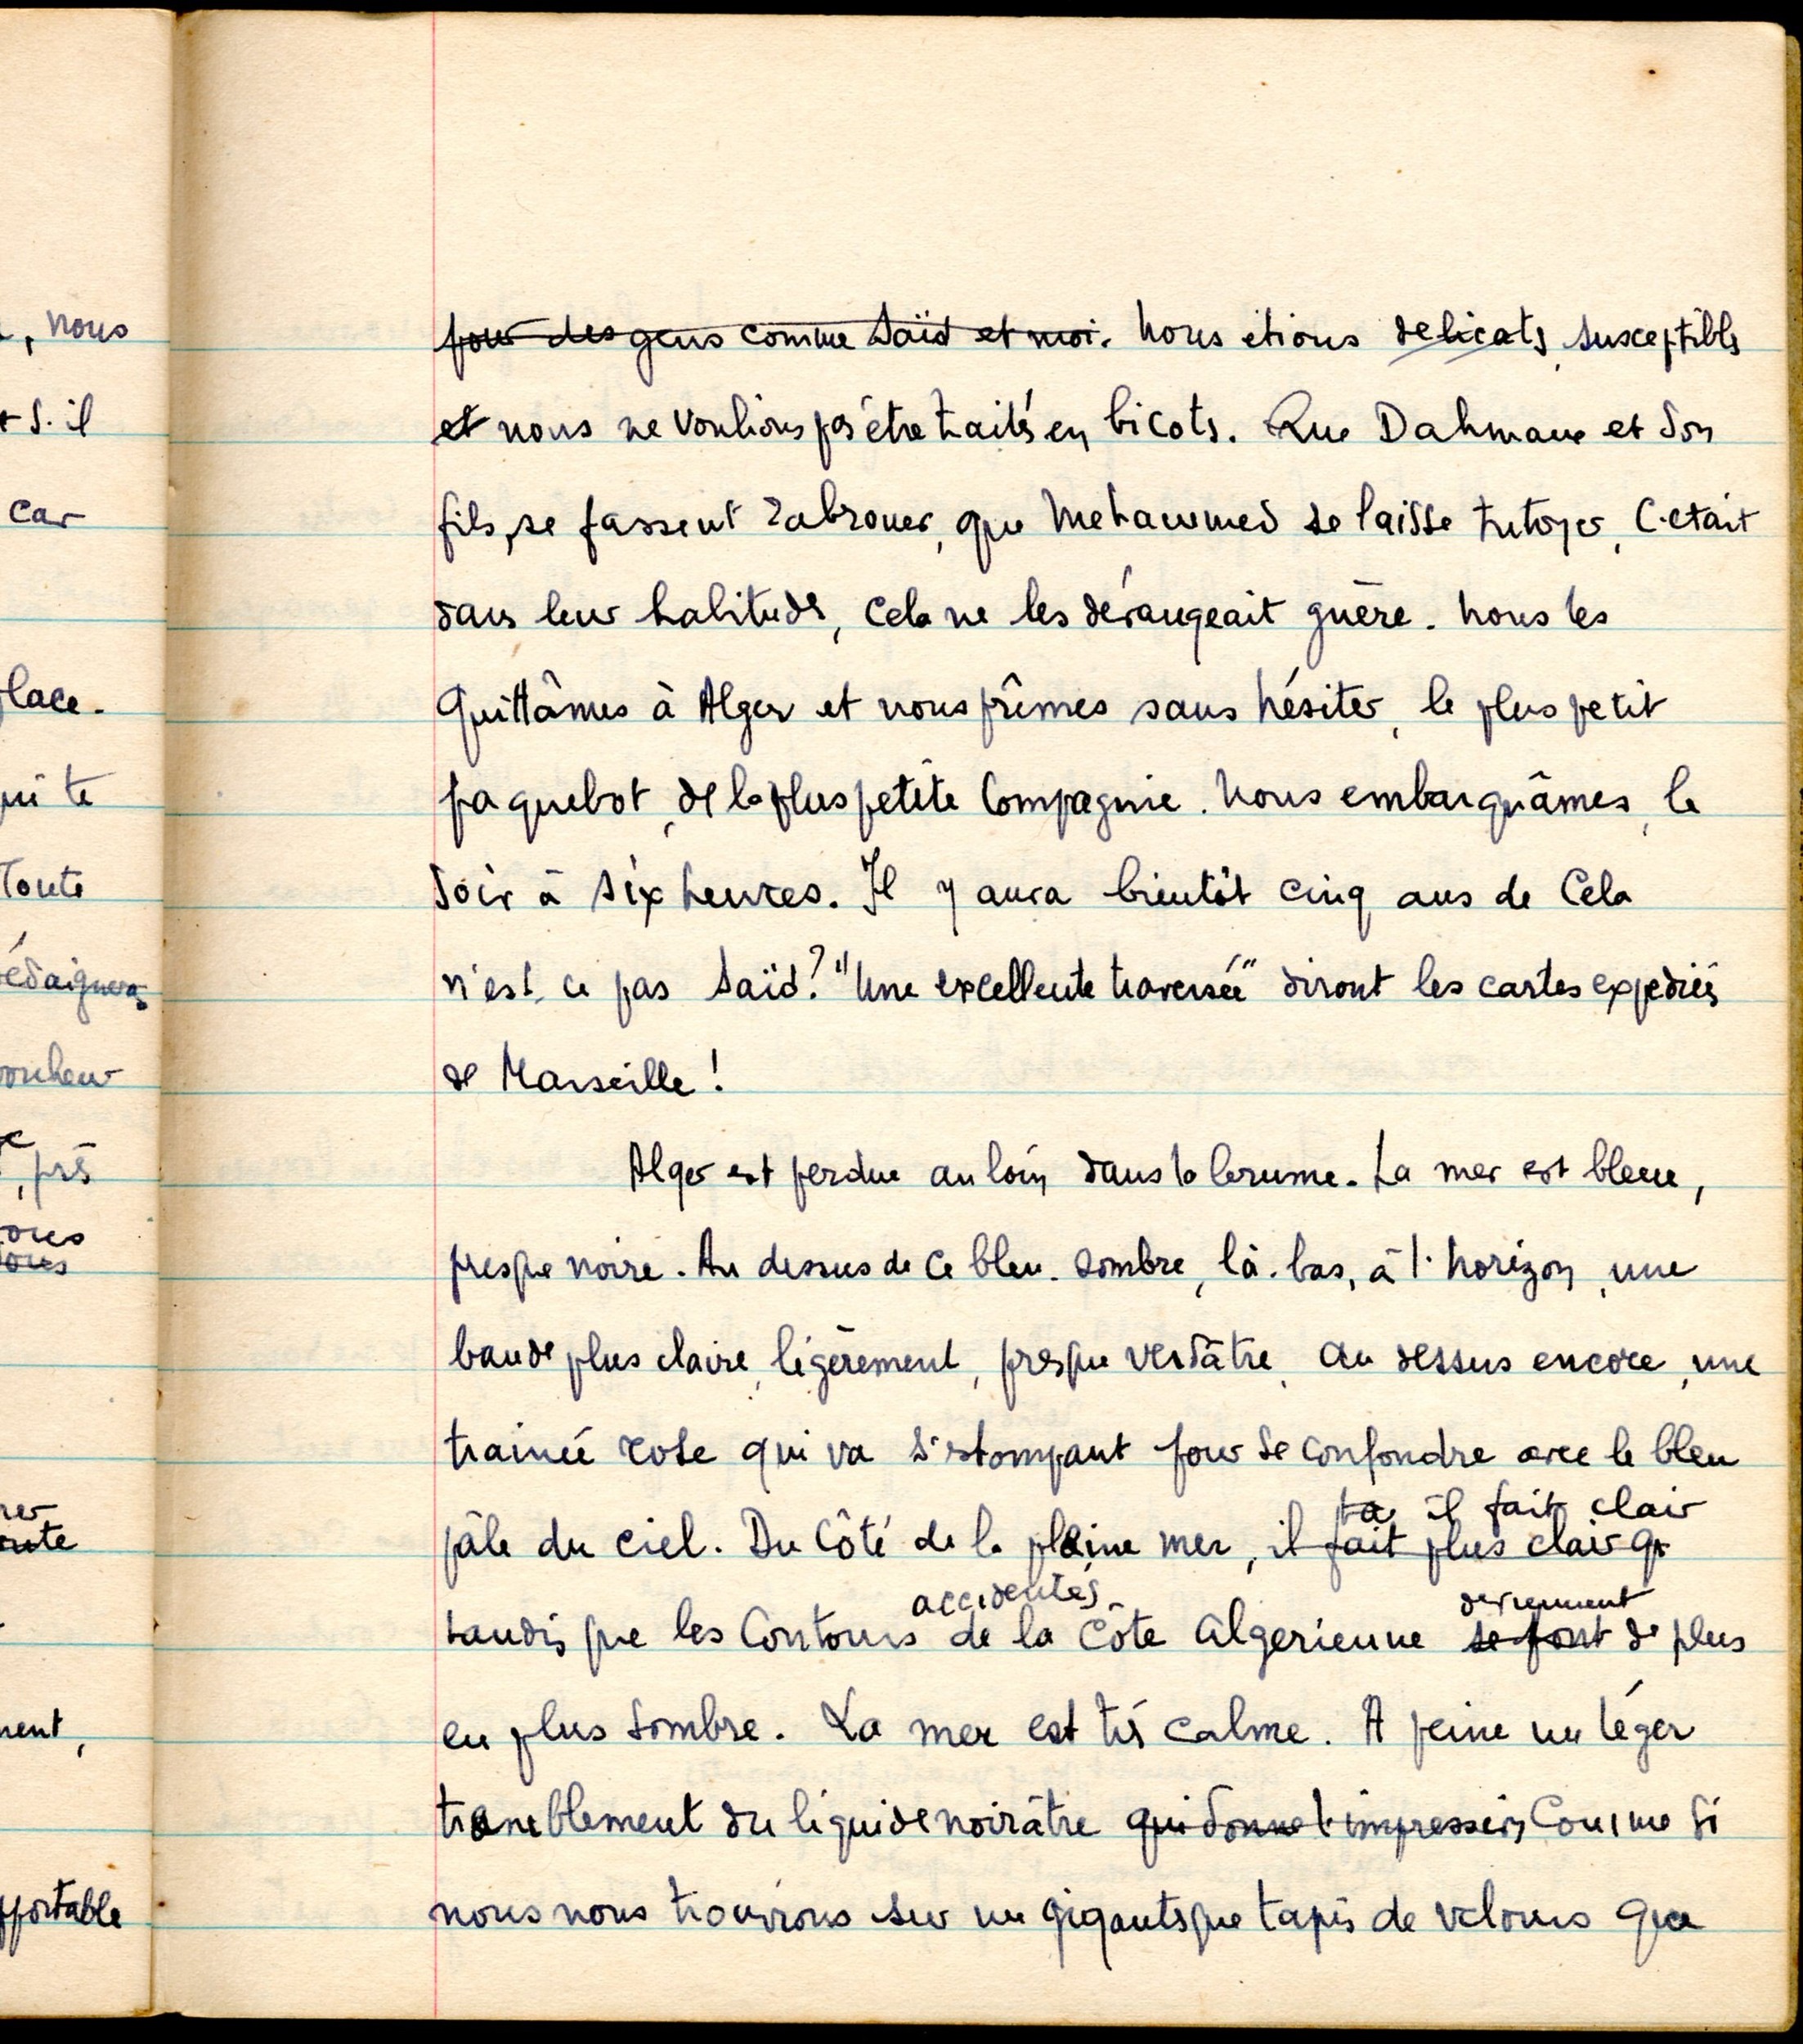 , nous
s. il
car
lace.
ui te
Toute
édaignera
onheur
, prè
ous
ous
rer
oute
ment,
pportable
pour des gens comme Saïd et moi. Nous étions délicats, susceptibles
et nous ne voulions pas être traités en bicots. Que Dahmane et son
fils, se fassent rabrouer, que Mohammed se laisse tutoyer, c'etait
dans leur habitude, cela ne les dérangeait guère. Nous les
quittâmes à Alger et nous prîmes sans hésiter, le plus petit
paquebot, de la plus petite Compagnie. Nous embarquâmes, le
soir à six heures. Il y aura bientôt cinq ans de cela
n'est-ce pas Saïd ? "Une excellente traversée" diront les cartes expediées
de Marseille !
Alger est perdue au loin dans la brume. La mer est bleue,
presque noire. Au dessus de ce bleu-sombre, là-bas, à l'horizon, une
bande plus claire, légèrement, presque verdâtre, au dessus encore, une
trainée rose qui va s'estompant pour se confondre avec le bleu
il fait clair
pâle du ciel. Du côté de la pleine mer, il fait plus clair q
accidentés deviennent
tandis que les contours de la côte algerienne se font de plus
en plus sombre. La mer est très calme. A peine un léger
tremblement du liquide noirâtre qui donne l'impression comme si
nous nous trouvions sur un gigantesque tapis de velours que